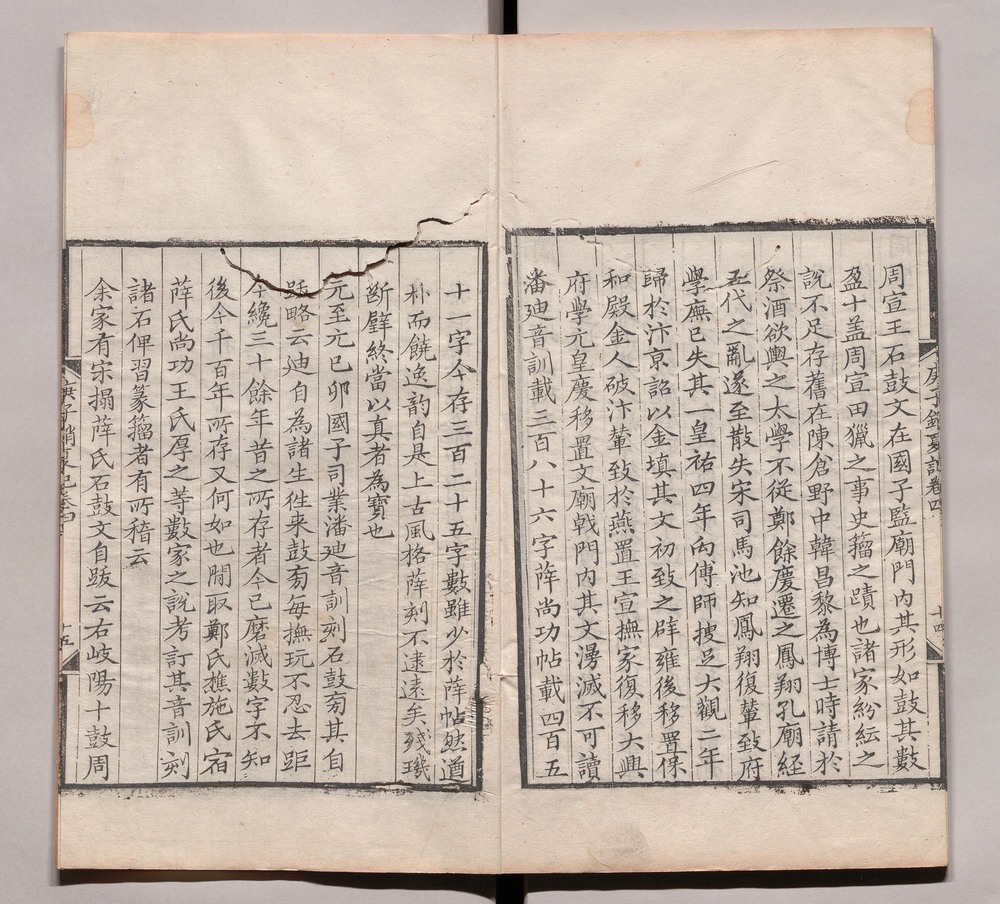 周宣王石鼓文在國子監廟門內其形如鼓其數
盈十盖周宣田獵之事史籀之蹟也諸家紛紜之
說不足存舊在陳倉野中韓昌黎為博士時請於
祭酒欲輿之太學不從鄭餘慶遷之鳳翔孔廟經
五代之亂遂至散失宋司馬池知鳳翔復輦致府
學廡已失其一皇祐四年向傅師搜足大觀二年
歸於汴京詔以金填其文初致之辟雍後移置保
和殿金人破汴輦致於燕置王宣撫家復移大興
府學元皇慶移置文廟戟門內其文漫滅不可讀
潘廸音訓載三百八十六字薛尚功帖載四百五
十一字今存三百二十五字數雖少於薛帖然遒
朴而饒逸韵自是上古風格薛刻不逮遠矣殘璣
斷璧終當以真者為寶也
元至元己卯國子司業潘廸音訓刻石鼓旁其自
䟦略云廸自為諸生徃来鼓旁每撫玩不忍去距
今纔三十餘年昔之所存者今已磨滅數字不知
後今千百年所存又何如也間取鄭氏樵施氏宿
薛氏尚功王氏厚之等數家之說考訂其音訓刻
諸石俾習篆籀者有所稽云
余家有宋搨薛氏石鼓文自䟦云右岐陽十鼓周
庚子銷夏記卷四
十四
庚子銷夏記卷四
十五